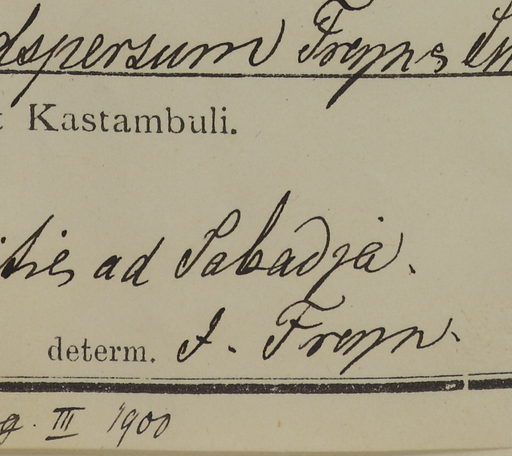 dspersum Freyn & Sin
t Kastambuli.
itie, ad Sabadja.
determ. J. Freyn.
g. III 1900